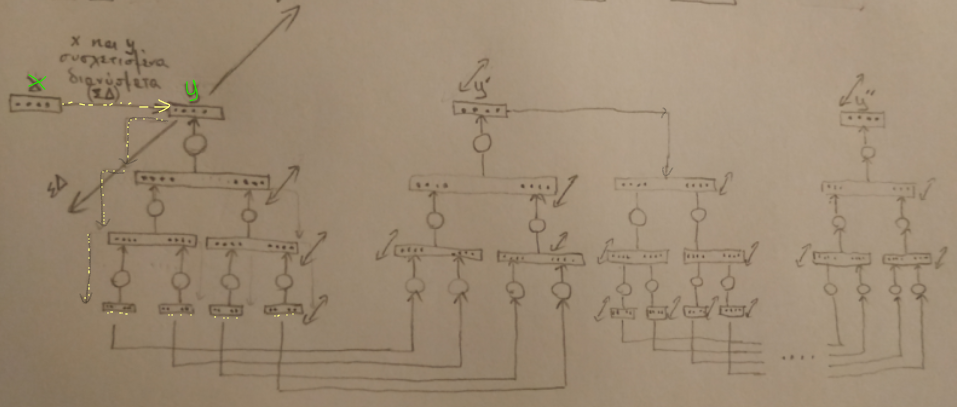 x και y
συσχετισμένα
διανύσματα
(ΣΔ)
x
y
ΣΔ
y'
y''